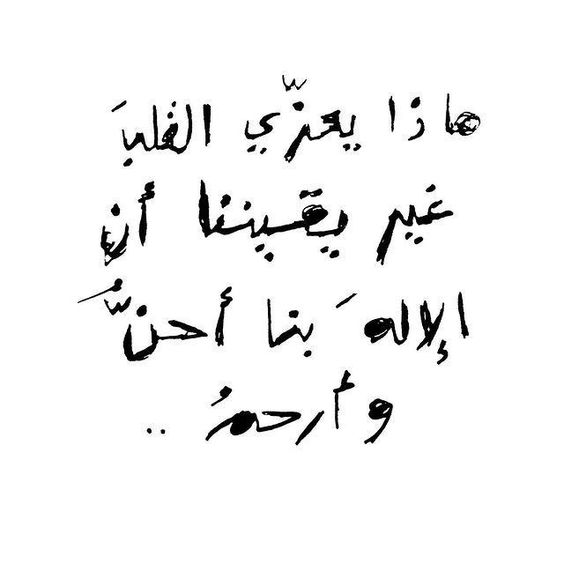 ماذا يعزّي القلبَ
غير يقيننا أن
الإلهَ بنا أحنُّ
وأرحمُ ..